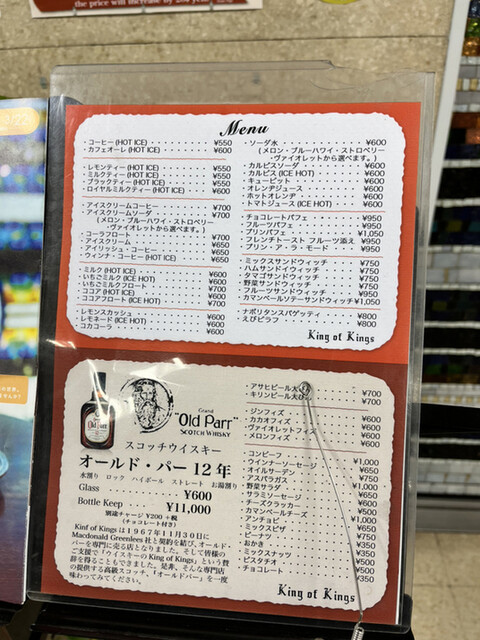 the price will increase by
Menu
・コーヒー (HOT ICE) ¥550
・カフェオーレ (HOT ICE) ¥600
・レモンティー (HOT ICE) ¥550
・ミルクティー (HOT ICE) ¥550
・ブラックティー (HOT ICE) ¥550
・ロイヤルミルクティー (HOT ICE) ¥600
・アイスクリームコーヒー ¥700
・アイスクリームソーダ ¥700
(メロン・ブルーハワイ・ストロベリー
・ヴァイオレットから選べます。)
・コーラフロート ¥700
・アイスクリーム ¥650
・アイリッシュ・コーヒー ¥650
・ウィンナ・コーヒー (HOT ICE) ¥650
・ミルク (HOT ICE) ¥600
・いちごミルク (ICE HOT) ¥600
・いちごミルクフロート ¥700
・ココア (HOT ICE) ¥600
・ココアフロート (ICE HOT) ¥700
・レモンスカッシュ ¥600
・レモネード (ICE HOT) ¥600
・コカコーラ ¥600
・ソーダ水 ¥600
(メロン・ブルーハワイ・ストロベリー
・ヴァイオレットから選べます。)
・カルピスソーダ ¥600
・カルピス (ICE HOT) ¥600
・キューピット ¥600
・オレンヂジュース ¥600
・ホットオレンヂ ¥600
・トマトジュース (ICE HOT) ¥600
・チョコレートパフェ ¥950
・フルーツパフェ ¥950
・プリンパフェ ¥1,050
・フレンチトースト フルーツ添え ¥950
・プリン・ア・ラ・モード ¥950
・ミックスサンドウィッチ ¥750
・ハムサンドウィッチ ¥750
・タマゴサンドウィッチ ¥750
・野菜サンドウィッチ ¥750
・フルーツサンドウィッチ ¥950
・カマンベールソテーサンドウィッチ ¥1,050
・ナポリタンスパゲッティ ¥800
・えびピラフ ¥800
King of Kings
Grand
"Old Parr"
SCOTCH WHISKY
スコッチウイスキー
オールド・パー 12 年
水割り ロック ハイボール ストレート お湯割り
Glass ¥600
Bottle Keep ¥11,000
別途チャージ ¥200 +税
(チョコレート付き)
Kinf of Kings は1967年11月30日に
Macdonald Greenlees 社と契約を結び、オールド・
パーを専門に売る店となりました。そして皆様の
ご支援で「ウイスキーのKing of Kings」という賛
辞を得ることもできました。是非、そんな専門店
の提供する高級スコッチ、「オールドパー」を一度
味わってみてください。
・アサヒビール大び ¥700
・キリンビール大び ¥700
・ジンフィズ ¥600
・カカオフィズ ¥600
・ヴァイオレットフィズ ¥600
・メロンフィズ ¥600
・コンビーフ ¥1,000
・ウインナーソーセージ ¥500
・オイルサーデン ¥750
・アスパラガス ¥750
・野菜サラダ ¥1,000
・サラミソーセージ ¥500
・チーズクラッカー ¥500
・カマンベールチーズ ¥500
・アンチョビ ¥1,000
・ミックスピザ ¥650
・ピーナツ ¥350
・おかき ¥350
・ミックスナッツ ¥350
・ピスタチオ ¥500
・チョコレート ¥350
King of Kings